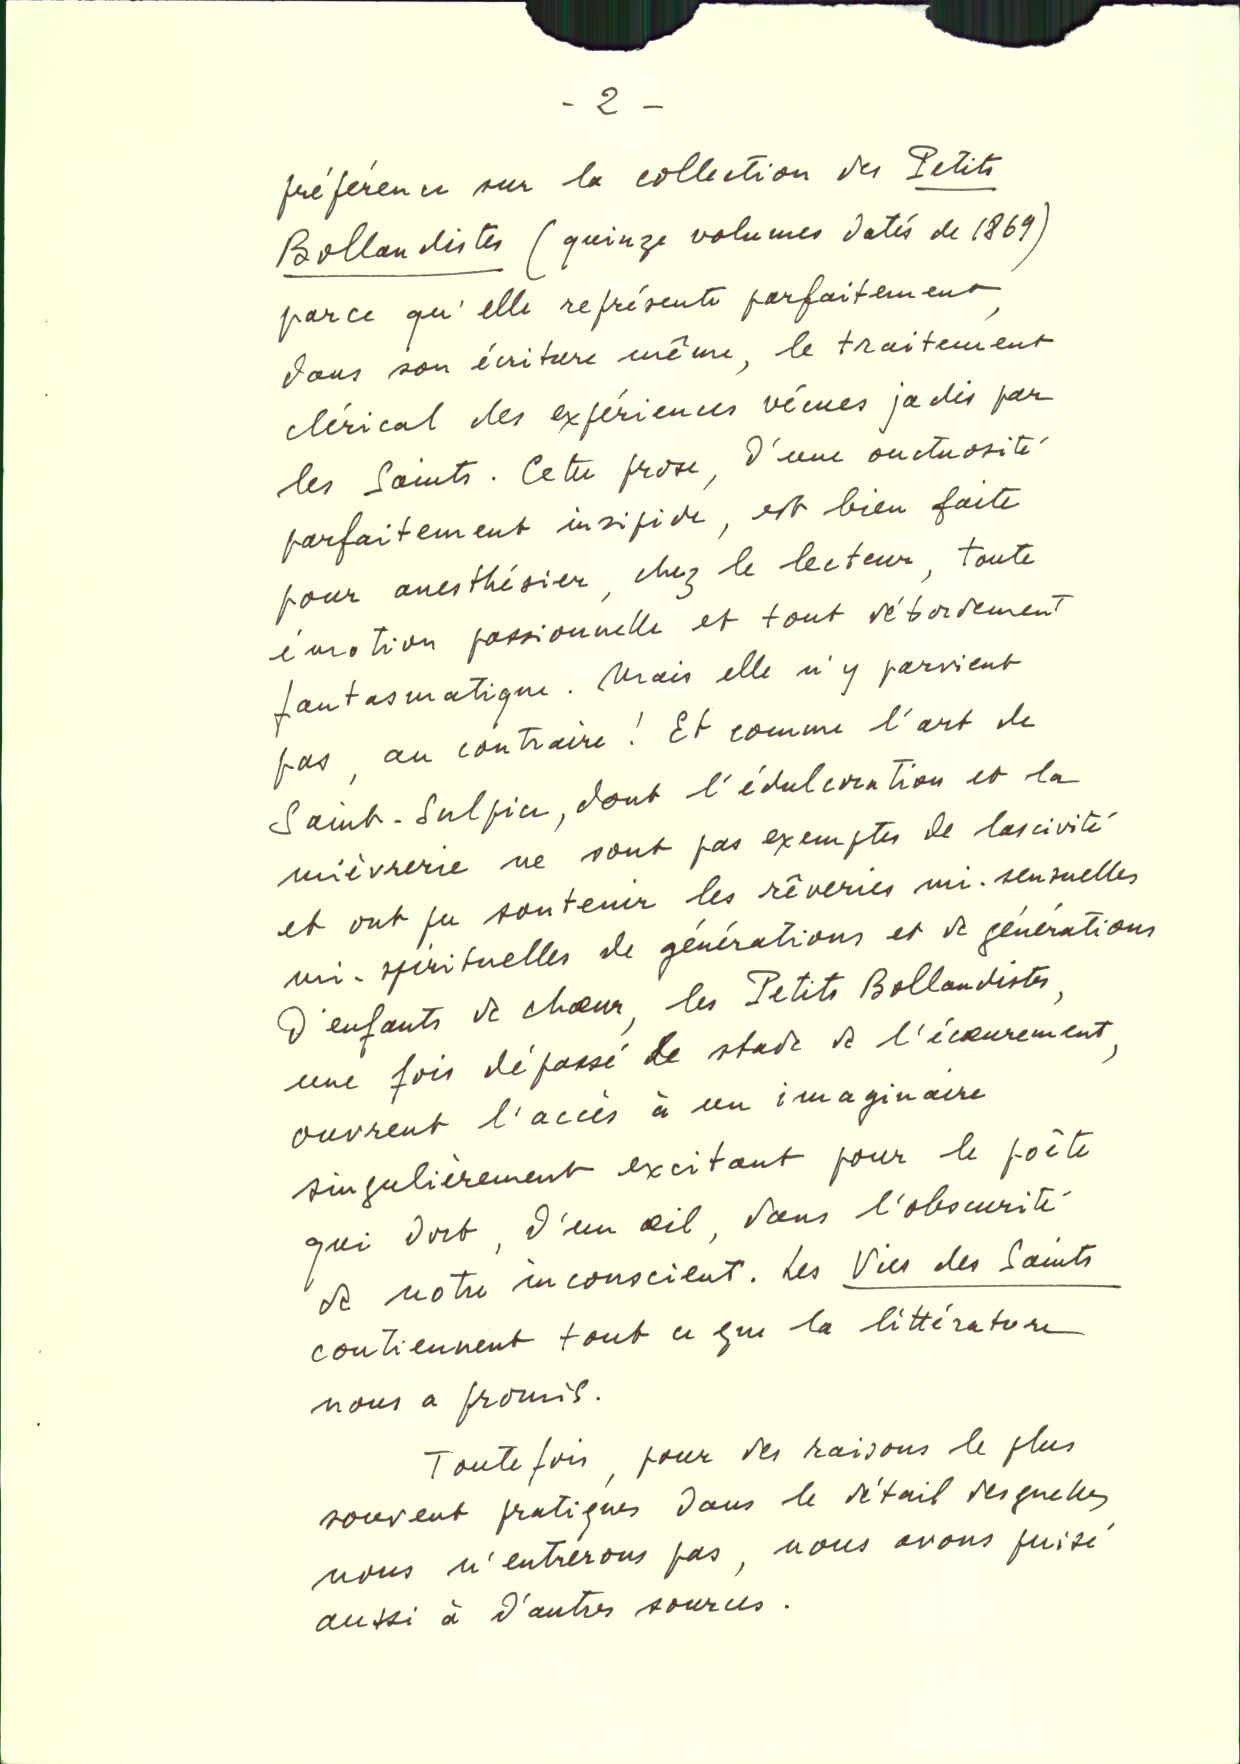 - 2 -
préférence sur la collection des Petits
Bollandistes (quinze volumes datés de 1869)
parce qu'elle représente parfaitement,
dans son écriture même, le traitement
clérical des expériences vécues jadis par
les Saints. Cette prose, d'une onctuosité
parfaitement insipide, est bien faite
pour anesthésier, chez le lecteur, toute
émotion passionnelle et tout débordement
fantasmatique. Mais elle n'y parvient
pas, au contraire ! Et comme l'art de
Saint-Sulpice, dont l'édulcoration et la
mièvrerie ne sont pas exemptes de lascivité
et ont pu soutenir les rêveries mi-sensuelles
mi-spirituelles de générations et de générations
d'enfants de chœur, les Petits Bollandistes,
une fois dépassé le stade de l'écœurement,
ouvrent l'accès à un imaginaire
singulièrement excitant pour le poète
qui dort, d'un œil, dans l'obscurité
de notre inconscient. Les Vies des Saints
contiennent tout ce que la littérature
nous a promis.
Toutefois, pour des raisons le plus
souvent pratiques dans le détail desquelles
nous n'entrerons pas, nous avons puisé
aussi à d'autres sources.